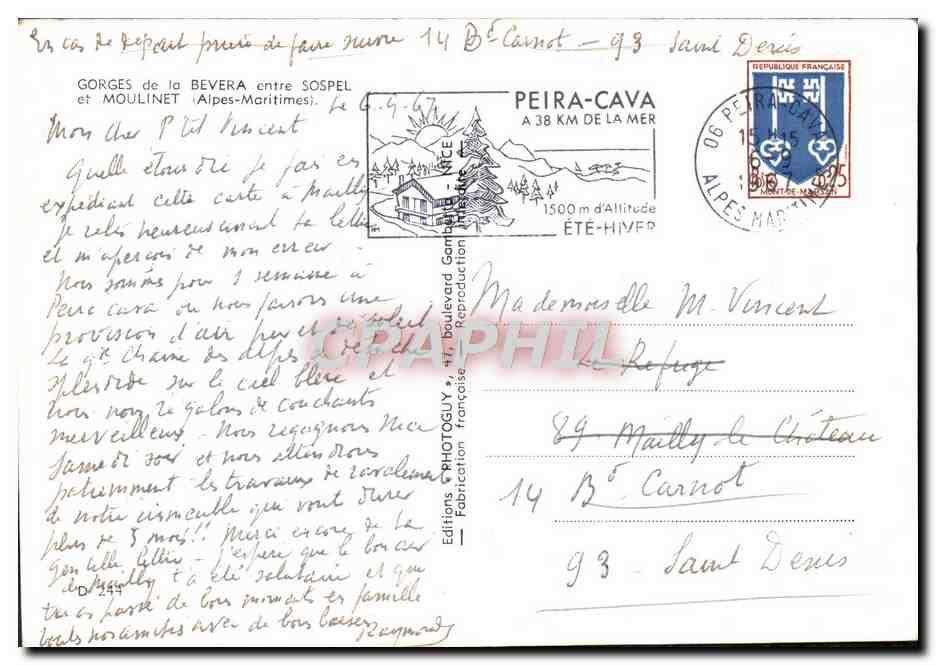 En cas de départ prière de faire suivre 14 Bd Carnot - 93 Saint Denis
GORGES de la BEVERA entre SOSPEL
et MOULINET (Alpes-Maritimes).
Le 6.9.67
Mon cher P'tit Vincent
Quelle étourdie je fais en
expédiant cette carte à Mailly
je relis heureusement ta lettre
et m'aperçois de mon erreur.
Nous sommes pour 1 semaine à
Peira cava où nous faisons une
provision d'air pur et de soleil
La gde Chaine des Alpes se détache
splendide sur le ciel bleu et
nous nous régalons de couchants
merveilleux. Nous regagnons Nice
Samedi soir et nous attendrons
patiemment les travaux de ravalement
de notre immeuble qui vont durer
plus de 3 mois!! Merci encore de ta
gentille lettre - j'espère que le bon air
de Mailly t'a été salutaire et que
tu as passé de bons moments en famille
toutes nos amitiés avec de bons baisers
Raymonde
D 244
Editions « PHOTOGUY », 47, boulevard Gambetta - NICE
Fabrication française - Reproduction interdite
PEIRA-CAVA
A 38 KM DE LA MER
1500 m d'Altitude
ÉTÉ-HIVER
06 PEIRA-CAVA
15H15
6-9
1967
ALPES MARITIMES
REPUBLIQUE FRANÇAISE
0,25
MONT-DE-MARSAN
Mademoiselle M. Vincent
Le Refuge
89 - Mailly le Château
14 Bd Carnot
93 - Saint Denis
CPAPHIL